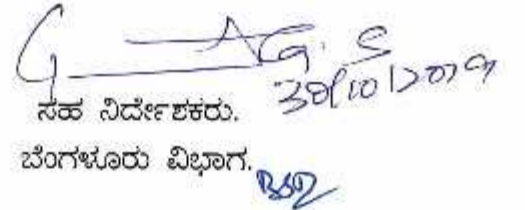 30/10/2019
ಸಹ ನಿರ್ದೇಶಕರು.
ಬೆಂಗಳೂರು ವಿಭಾಗ.